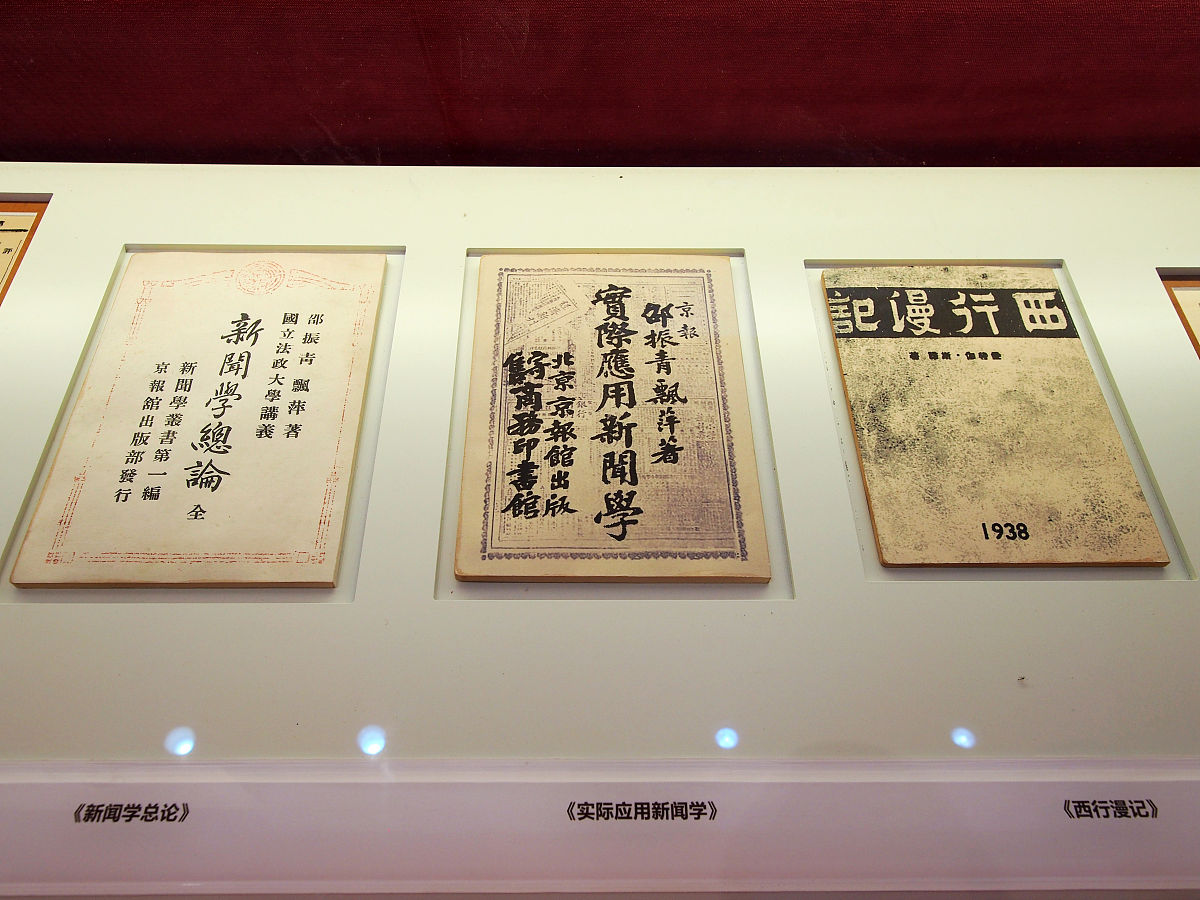 邵振青飄萍著
國立法政大學講義
新聞學總論 全
新聞學叢書第一編
京報館出版部發行
京報
邵振青飄萍著
實際應用新聞學
北京京報館出版
寄售商務印書館
西行漫記
愛特伽·斯諾 著
1938
《新闻学总论》
《实际应用新闻学》
《西行漫记》